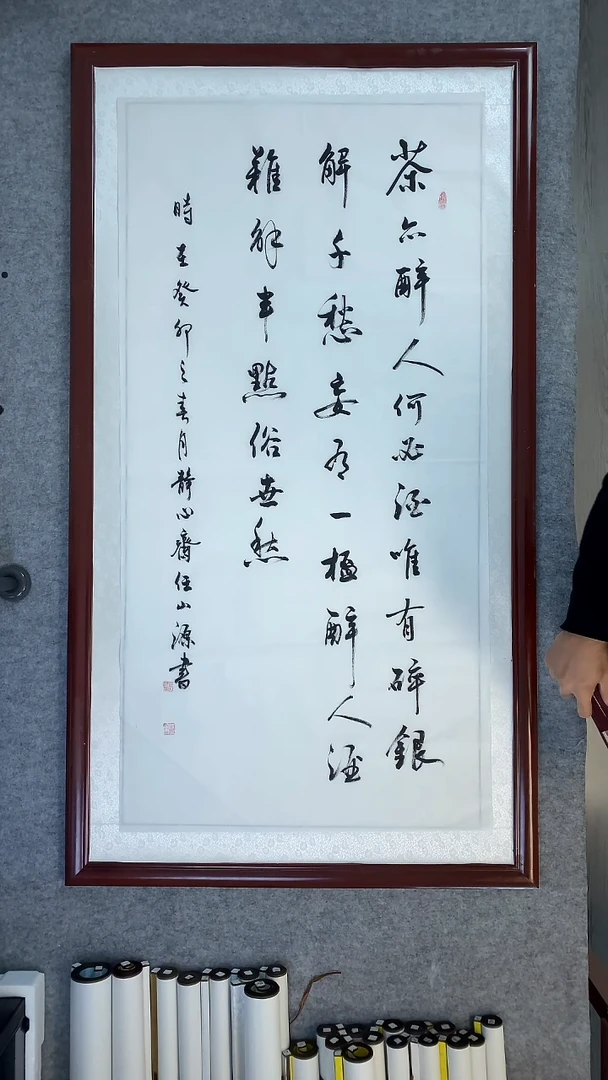 茶亦醉人何必酒唯有碎銀
解千愁妄有一醉人酒
難解半點俗世愁
時在癸卯之春月靜心齋任山源書